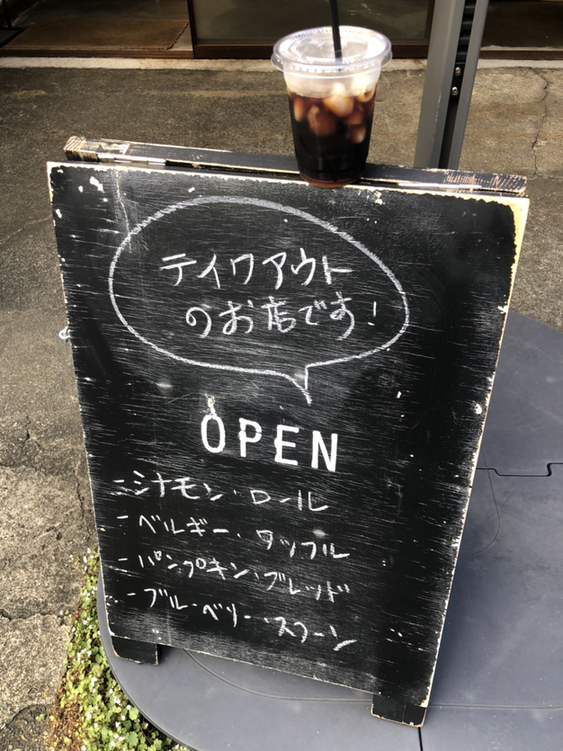 テイクアウト
のお店です!
OPEN
- シナモン・ロール
- ベルギー・ワッフル
- パンプキン・ブレッド
- ブルーベリー・スコーン